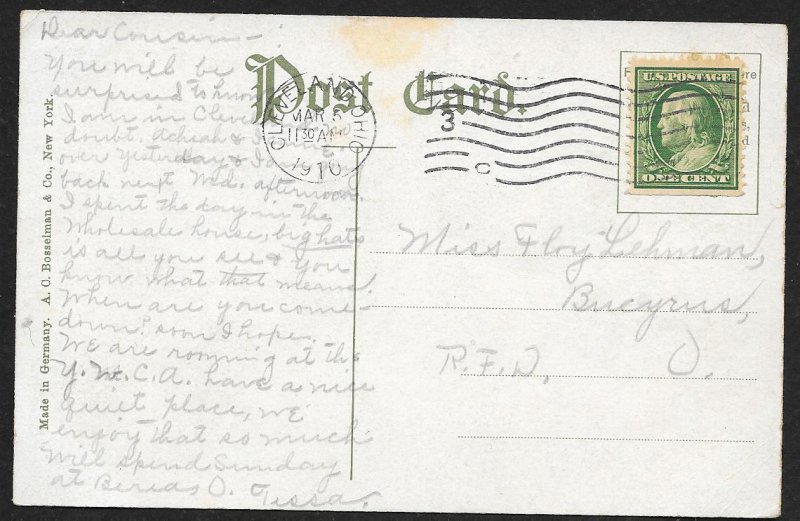 Dear Cousin –
You will be
surprised to know
I am in Cleve
doubt. &
over Yesterday &
back next Wed. afternoon.
I spent the day in the
Wholesale house, big hats
is all you see & you
know what that means.
When are you come-
down? soon I hope.
We are rooming at the
Y.W.C.A. have a nice
quiet place, we
enjoy that so much
Will spend Sunday
at Bereas O. Tessa.
Made in Germany. A. C. Bosselman & Co., New York.
Post Card.
CLEVELAND, OHIO
MAR 5
11 30 AM
1910
3
C
U.S. POSTAGE
ONE CENT
Miss Floy Lehman,
Bucyrus,
R.F.D. O.